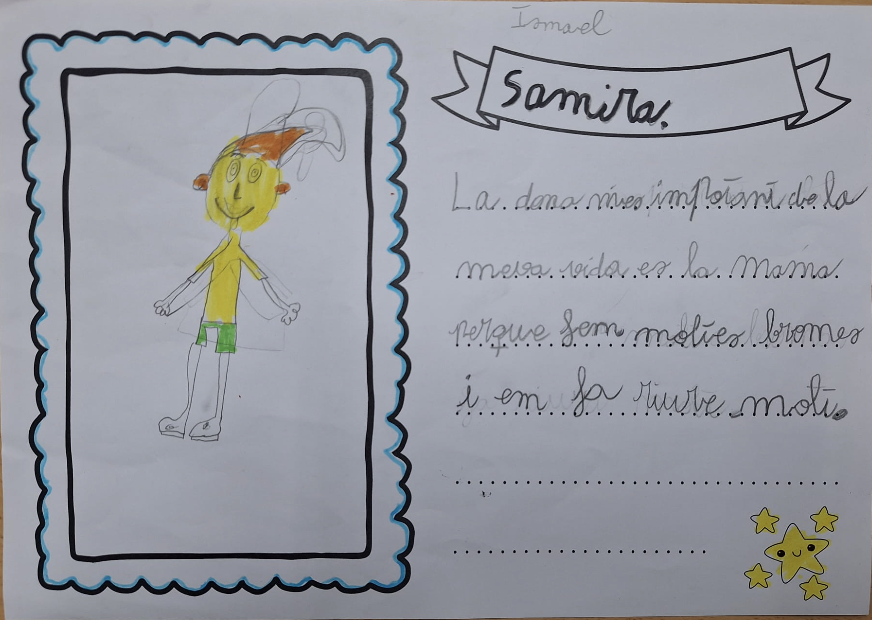 Ismael
Samira.
La dona mes impotant de la
meva vida es la mama
perque fem moltes bromes
i em fa riure molt.